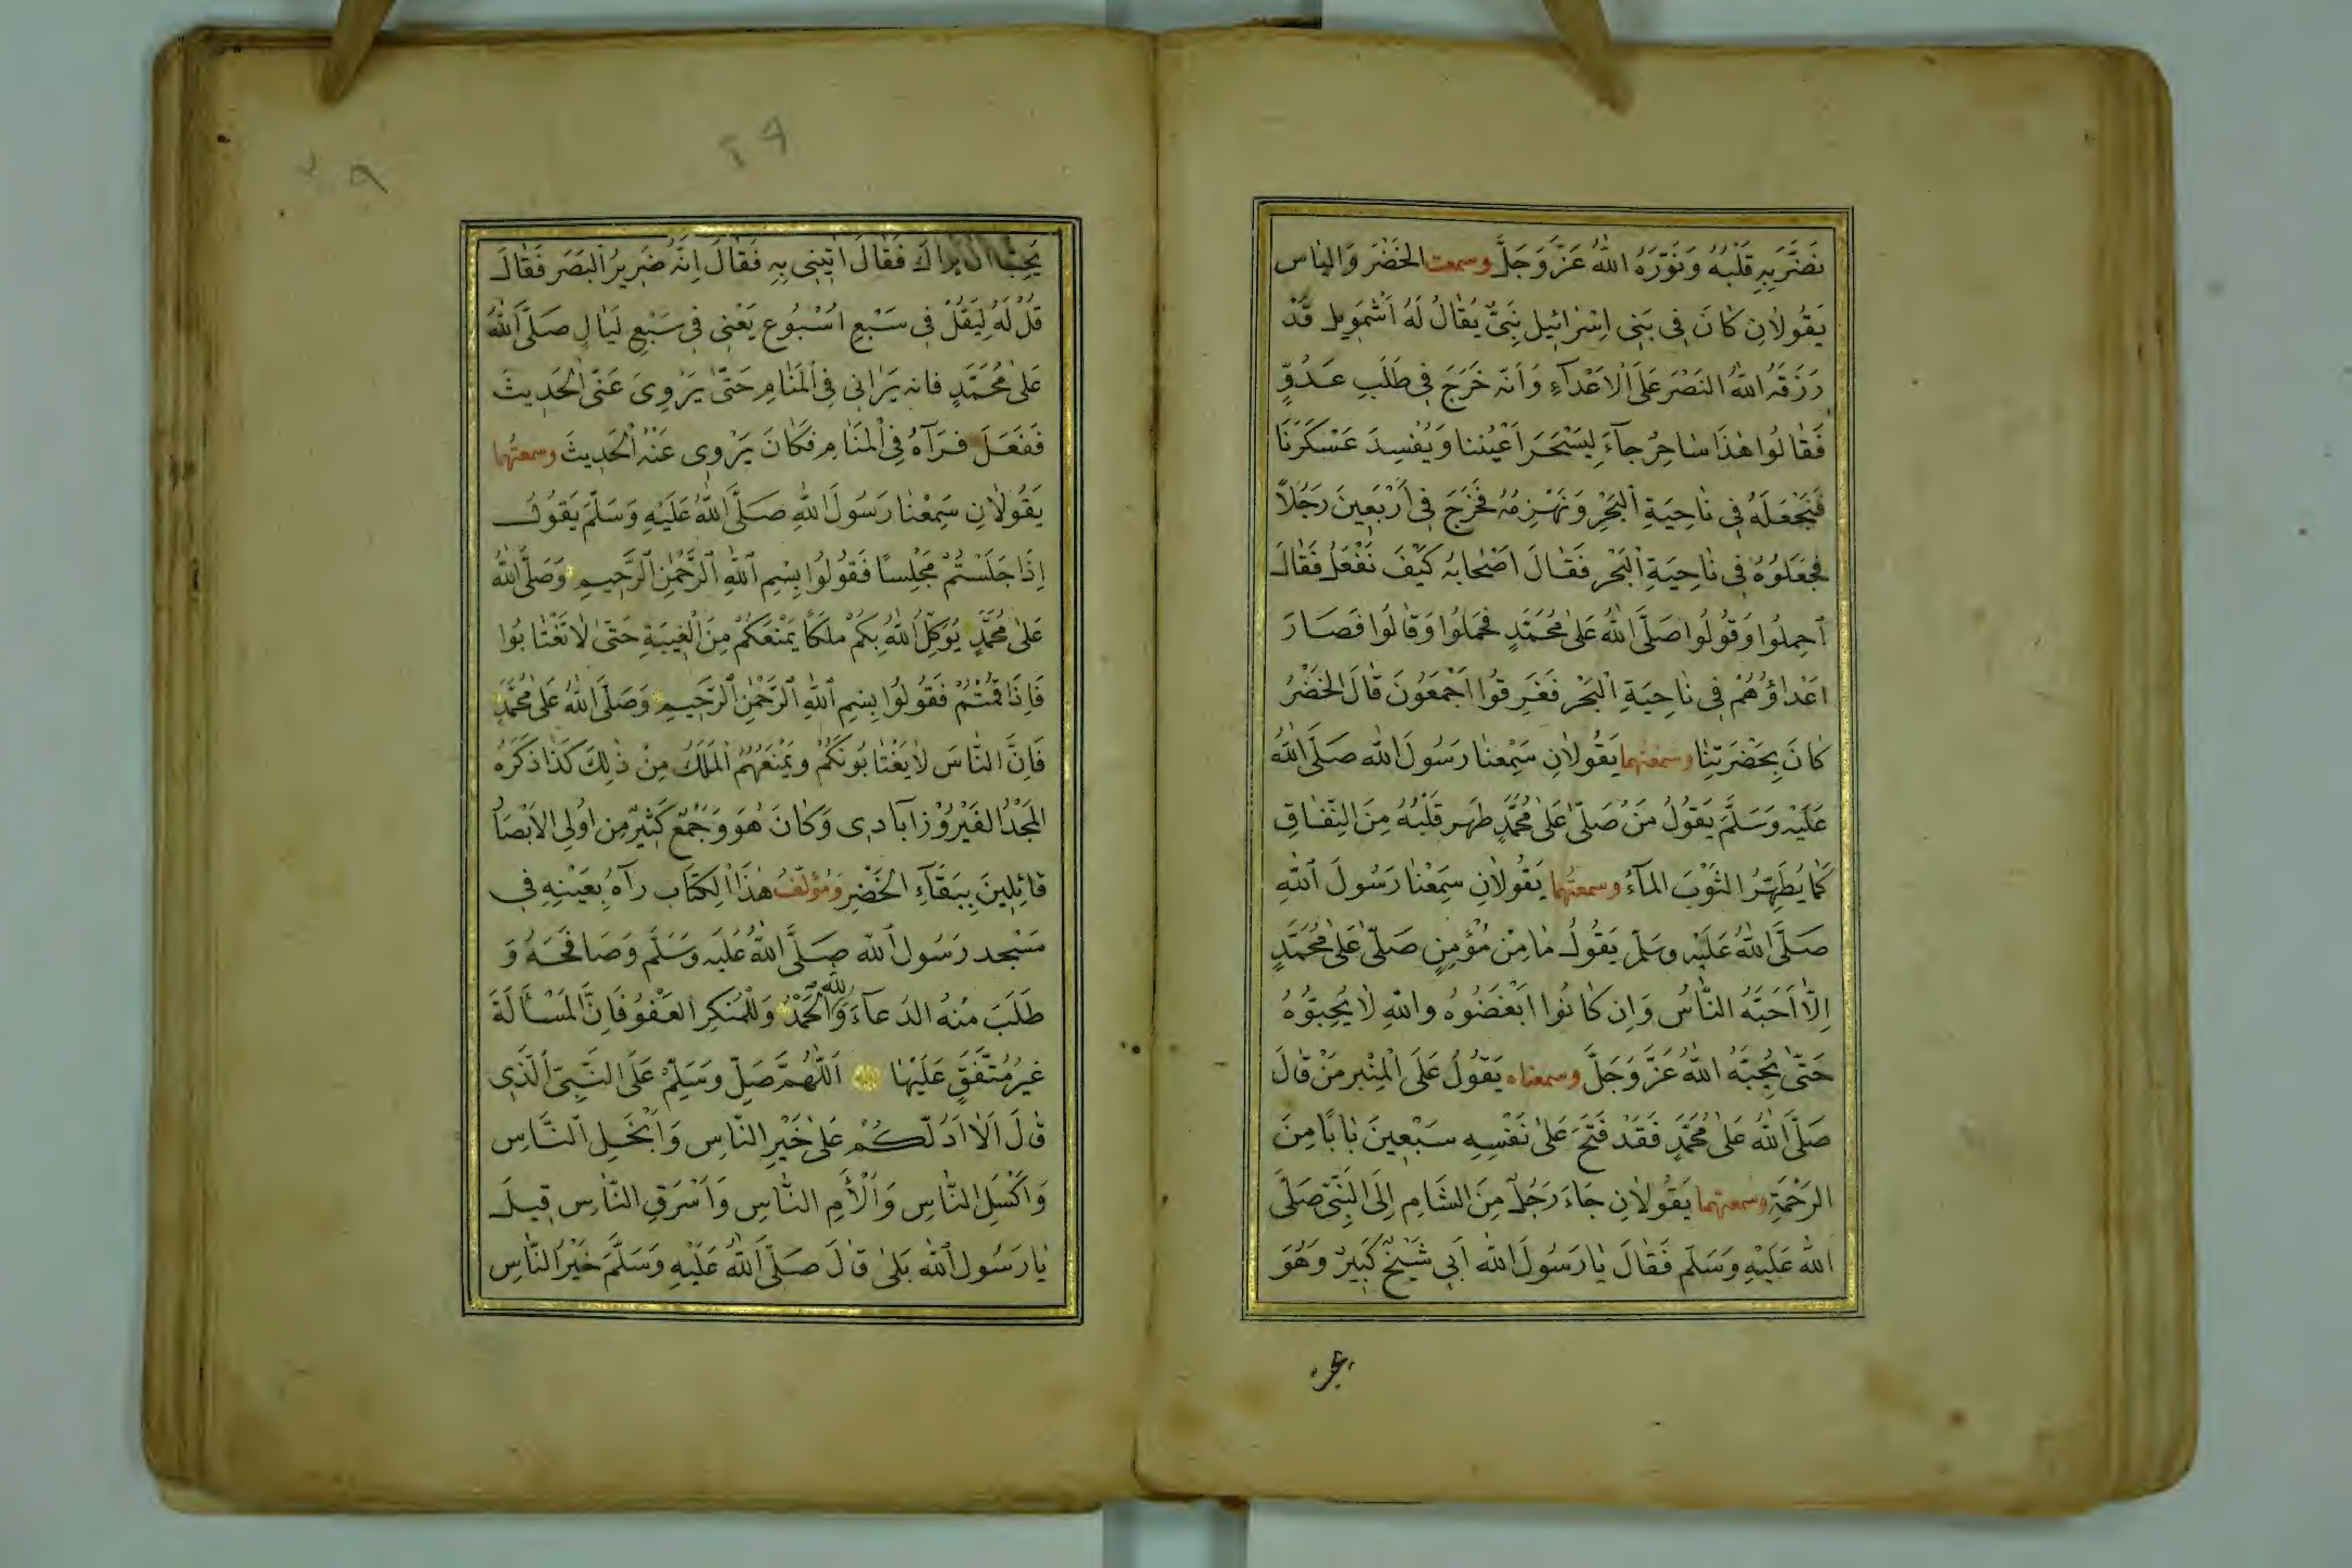 نَضَّرَ بِهِ قَلْبَهُ وَنَوَّرَهُ اللهُ عَزَّ وَجَلَّ وسمعت الخَضْرَ وَالياس
يَقُولَانِ كَانَ فِي بَنِي اِسْرَائِيل نَبِيٌّ يُقَالُ لَهُ اَشْمَوِيل قَدْ
رَزَقَهُ اللهُ النَصْرَ عَلَى الْاَعْدَآءِ وَاَنّه خَرَجَ فِي طَلَبِ عَدُوٍّ
فَقَالُوا هٰذَا سَاحِرٌ جآءَ لِيَسْحَرَ اَعْيُنَنا وَيُفْسِدَ عَسْكَرَنَا
فَنَجْعَلَهُ فِي نَاحِيَةِ الْبَحْرِ وَنَهْزِمُهُ فَخَرَجَ فِي اَرْبَعِينَ رَجُلاً
فجَعَلُوهُ فِي نَاحِيَةِ الْبَحْرِ فَقَالَ اَصْحَابُهُ كَيْفَ نَفْعَلُ فَقَالَ
اَحِملُوا وَقُولُوا صَلَّى اللهُ عَلَى مُحَمَّدٍ فَحَمَلُوا وَقَالُوا فَصَارَ
اَعْدَاؤُهُمْ فِي نَاحِيَةِ الْبَحْرِ فَغَرِقُوا اَجْمَعُونَ قَالَ الخَضْرُ
كَانَ بِحَضْرَتِنَا وسمعتهما يَقُولَانِ سَمِعْنَا رَسُولَ الله صَلَّى اللهُ
عَلَيْهِ وَسَلَّمَ يَقُولُ مَنْ صَلّى عَلَى مُحَمَّدٍ طَهر قَلْبُهُ مِنَ النِّفَاقِ
كَمَا يُطَهِّرُ الثَوْبَ المآءُ وسمعتهما يَقُولَانِ سَمِعْنَا رَسُولَ اللهِ
صَلَّى اللهُ عَلَيْهِ وسَلّم يَقُولُ مَا مِنْ مُؤْمِنٍ صَلّى عَلَى مُحَمَّدٍ
اِلّا اَحَبَّهُ النَّاسُ وَاِن كَانُوا اَبْغَضُوهُ واللهِ لَا يُحِبُّوْهُ
حَتّى يُحِبَّهُ اللهُ عَزَّ وَجَلَّ وسمعناه يَقُولُ عَلَى الْمِنْبَرِ مَنْ قالَ
صَلَّى اللهُ عَلَى مُحَمَّدٍ فَقَدْ فَتَحَ عَلَى نَفْسِهِ سَبْعِينَ بَابًا مِنَ
الرَحْمَةِ وسمعتهما يَقُولَانِ جَاءَ رَجُلٌ مِنَ الشَامِ اِلَى النَبِيّ صَلَّى
الله عَلَيْهِ وَسَلّمَ فَقَالَ يَا رَسُولَ الله اَبِي شَيْخٌ كَبِيرٌ وَهُوَ
يُحِبُّ اَن يراكَ فَقَالَ ائْتِنِي بِهِ فَقَالَ اِنَّهُ ضَرِيرُ البَصَرِ فَقَالَ
قُلْ لَهُ لِيَقُلْ فِي سَبْعِ اُسْبُوعٍ يَعْنِي فِي سَبْعِ لَيَالٍ صَلَّى اللهُ
عَلَى مُحَمَّدٍ فانه يَرَانِي فِي الْمَنَامِ حَتّى يَرْوِيَ عَنّي الْحَدِيثَ
فَفَعَلَ فَرَآهُ فِي الْمَنَامِ فَكَانَ يَرْوِى عَنْهُ الْحَدِيثَ وسمعتُهما
يَقُولَانِ سَمِعْنَا رَسُولَ اللهِ صَلَّى اللهُ عَلَيْهِ وَسَلَّمَ يَقُولُ
اِذَا جَلَسْتُمْ مَجْلِسًا فَقُولُوا بِسْمِ اللهِ الرَّحْمٰنِ الرَّحِيمِ وَصَلَّى اللهُ
عَلَى مُحَمَّدٍ يُوَكِّلُ اللهُ بِكُمْ مَلَكًا يَمْنَعَكُمْ مِنَ الْغِيبَةِ حَتّى لَا تَغْتَابُوا
فَاِذَا قُمْتُمْ فَقُولُوا بِسْمِ اللهِ الرَّحْمٰنِ الرَّحِيمِ وَصَلَّى اللهُ عَلَى مُحَمَّدٍ
فَاِنَّ النَّاسَ لَا يَغْتَابُونَكُمْ وَيَمْنَعُهُمُ الْمَلَكُ مِنْ ذٰلِكَ كَذَا ذَكَرَهُ
المَجْدُ الفَيْرُوْزآبادِى وَكَانَ هُوَ وَجَمْعٌ كَثِيرٌ مِن اُولِى الاَبْصَارِ
قَائِلِينَ بِبَقَآءِ الْخَضْرِ وَمُؤَلّفُ هٰذَا الكِتَاب رآهُ بِعَيْنِهِ فِي
مَسْجِد رَسُول الله صَلَّى اللهُ عَلَيْهِ وَسَلَّم وَصَافَحَهُ وَ
طَلَبَ مِنْهُ الدعآءَ وَالْحَمْدُ لله وَلِلْمُنْكِرِ العَفْوُ فَاِنَّ الْمَسْأَلَةَ
غيرُ مُتَّفَقٍ عَلَيْهَا اَللّهُمَّ صَلِّ وَسَلِّمْ عَلَى النَّبِيّ الَّذِى
قالَ اَلَا اَدُلُّكُمْ عَلَى خَيْرِ النَّاسِ وَاَبْخَلِ النَّاسِ
وَاَكْسَلِ النَّاسِ وَاَلْأَمِ النَّاسِ وَاَسْرَقِ النَّاسِ قِيلَ
يَا رَسُول الله بَلَى قالَ صَلّى اللهُ عَلَيْهِ وَسَلَّمَ خَيْرُ النَّاسِ